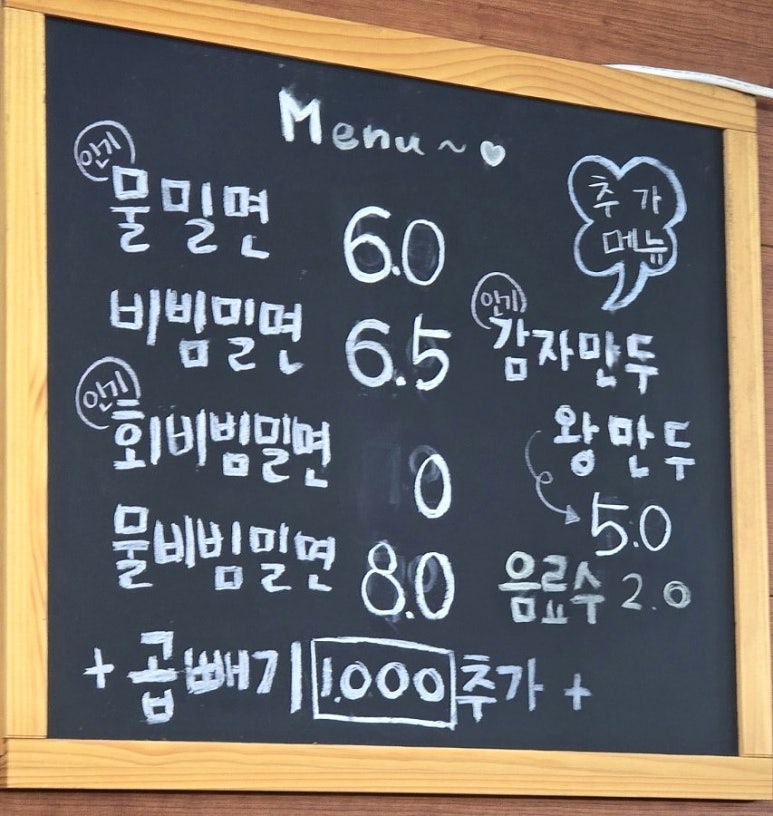 Menu~♥
인기
물밀면 6.0
비빔밀면 6.5
인기
회비빔밀면 0
물비빔밀면 8.0
+ 곱빼기 1.000 추가 +
추가
메뉴
인기
감자만두
왕만두
5.0
음료수 2.0